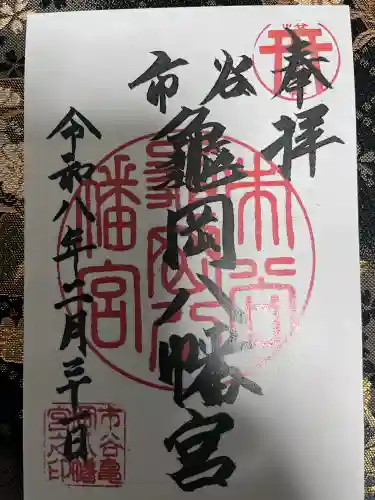 奉拝
市谷
龜岡八幡宮
令和八年三月三十一日
市谷
龜岡八
幡宮
市谷亀
岡八幡
宮之印